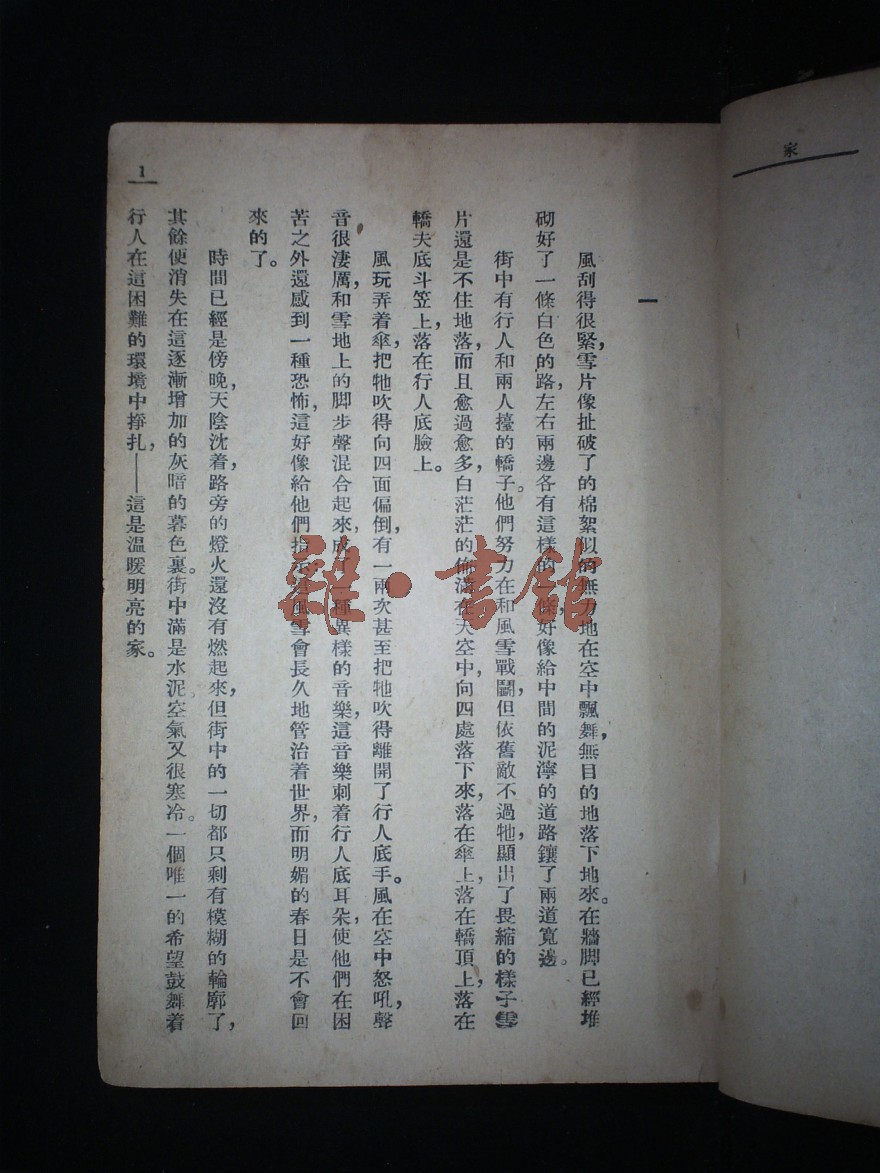 家
1
一
風刮得很緊，雪片像扯破了的棉絮似的無力地在空中飄舞，無目的地落下地來。在牆脚已經堆
砌好了一條白色的路，左右兩邊各有這樣的一條，好像給中間的泥濘的道路鑲了兩道寬邊。
街中有行人和兩人擡的轎子。他們努力在和風雪戰鬭，但依舊敵不過牠，顯出了畏縮的樣子雪
片還是不住地落，而且愈過愈多，白茫茫的佈滿在天空中，向四處落下來，落在傘上，落在轎頂上，落在
轎夫底斗笠上，落在行人底臉上。
風玩弄着傘，把牠吹得向四面偏倒，有一兩次甚至把牠吹得離開了行人底手。風在空中怒吼，聲
音很淒厲，和雪地上的脚步聲混合起來，成了一種異樣的音樂，這音樂刺着行人底耳朵，使他們在困
苦之外還感到一種恐怖，這好像給他們指示，這風雪會長久地管治着世界，而明媚的春日是不會回
來的了。
時間已經是傍晚，天陰沈着，路旁的燈火還沒有燃起來，但街中的一切都只剩有模糊的輪廓了，
其餘便消失在這逐漸增加的灰暗的暮色裏。街中滿是水泥，空氣又很寒冷。一個唯一的希望鼓舞着
行人在這困難的環境中掙扎，——這是溫暖明亮的家。
雜·書館